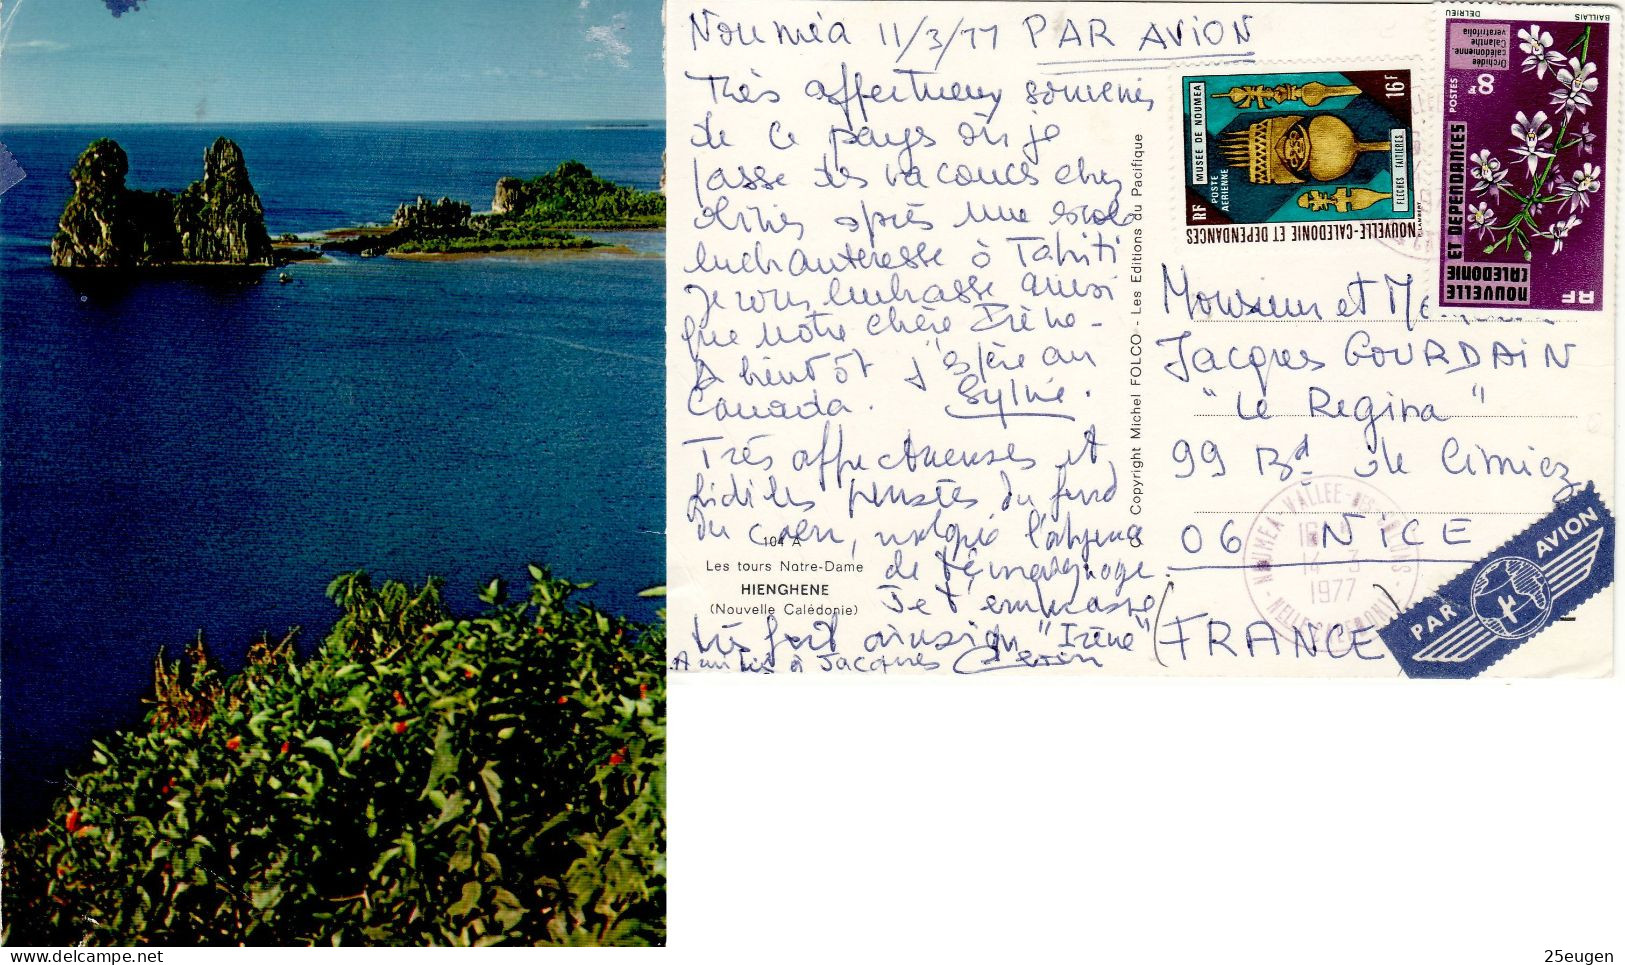 Nouméa 11/3/77 PAR AVION
Très affectueux souvenirs
de ce pays où je
passe des vacances chez
après une escale
enchanteresse à Tahiti
Je vous embrasse ainsi
que notre chère Irène -
A bientôt j'espère au
Canada. Sylvie.
Très affectueuses et
fidèles pensées du fond
du cœur, malgré l'absence
de témoignage.
Je t'embrasse
très fort ainsi qu' "Irène"
Amitiés à Jacques
104 A
Les tours Notre-Dame
HIENGHENE
(Nouvelle Calédonie)
Copyright Michel FOLCO - Les Editions du Pacifique
MUSEE DE NOUMEA
16F
POSTE AERIENNE
FLECHES FAITIERES
RF
NOUVELLE-CALEDONIE ET DEPENDANCES
G.LAMBERT
DELRIEU
BAILLAIS
Orchidée
calédonienne.
Calanthe
veratrifolia
8F
POSTES
NOUVELLE
CALEDONIE
ET DEPENDANCES
RF
Monsieur et
Jacques GOURDAIN
"Le Regina"
99 Bd de Cimiez
06 NICE
(FRANCE)
NOUMEA-VALLEE-DES-COLONS
14-3
1977
NELLE CALEDONIE
PAR AVION
25eugen